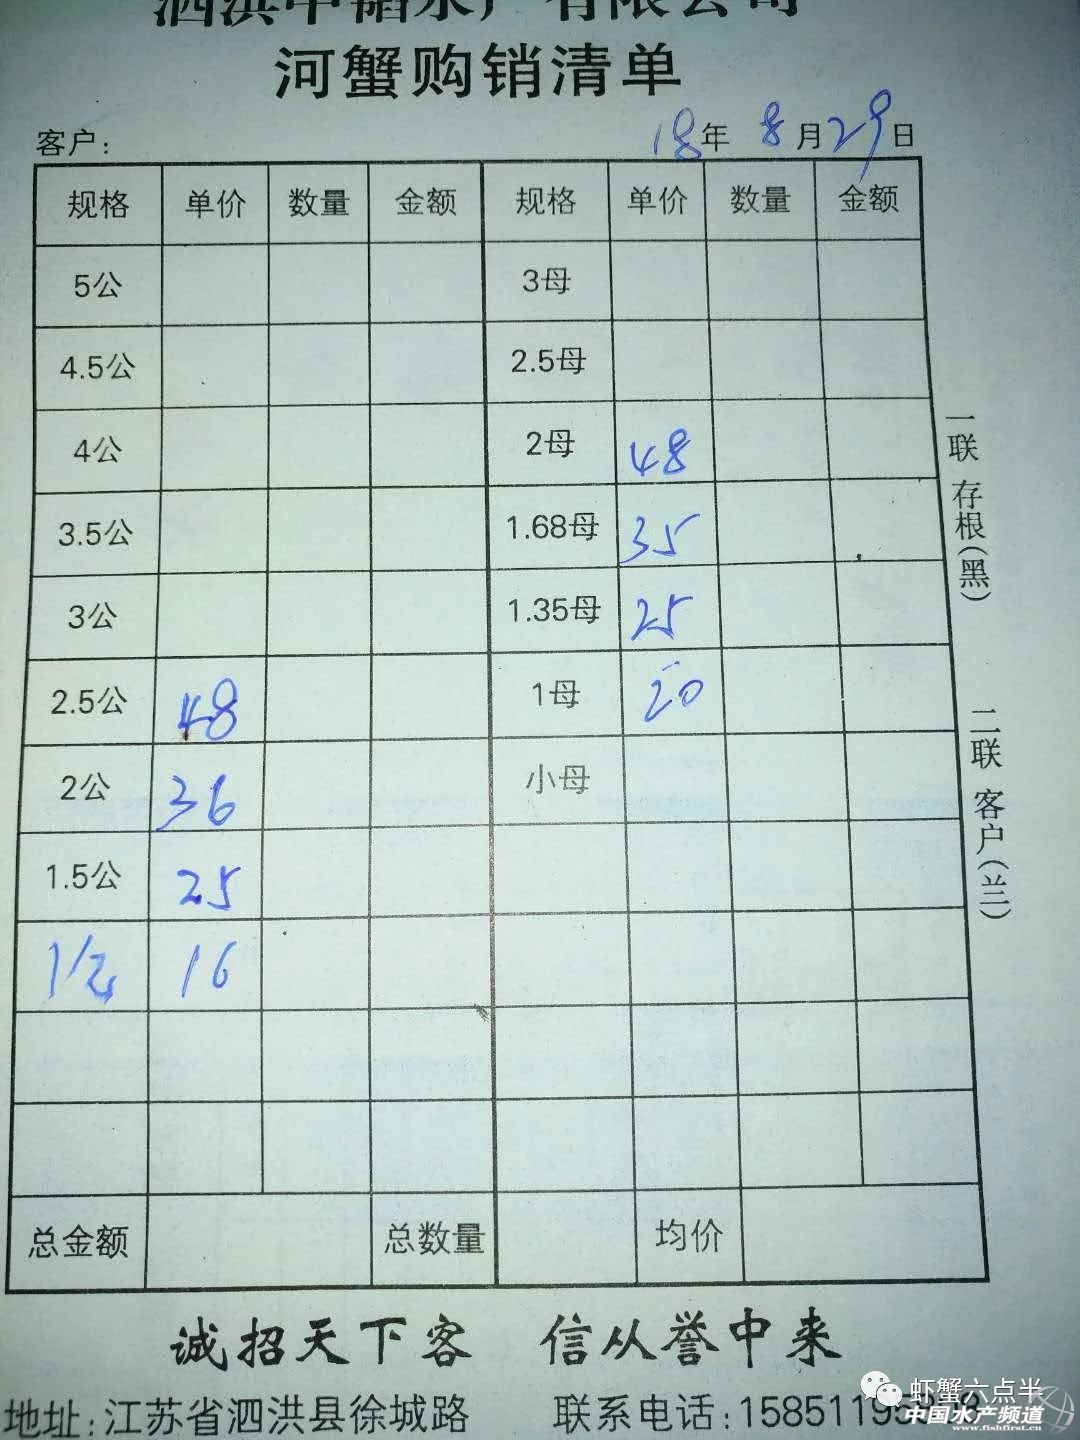 河蟹购销清单
客户: 18年 8月29日
规格 单价 数量 金额 规格 单价 数量 金额
5公 3母
4.5公 2.5母
4公 2母 48
3.5公 1.68母 35
3公 1.35母 25
2.5公 48 1母 20
2公 36 小母
1.5公 25
16
总金额 总数量 均价
一联 存根(黑)
二联 客户(兰)
诚招天下客 信从誉中来
地址:江苏省泗洪县徐城路 联系电话:158511
虾蟹六点半
中国水产频道
www.fishfirst.cn